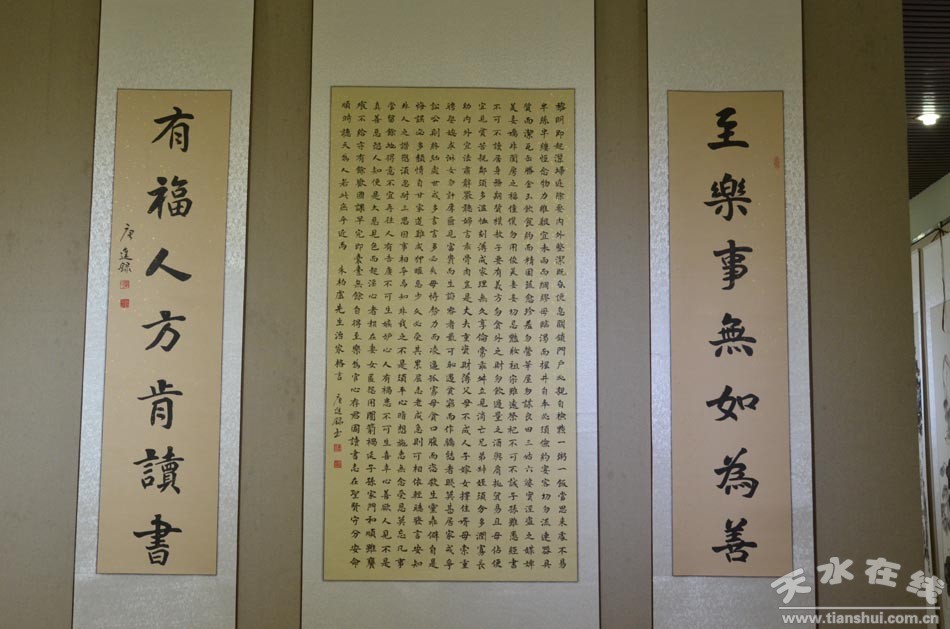 至樂事無如為善
黎明即起灑掃庭除要內外整潔既昏便息關鎖門户必親自檢點一粥一飯當思來處不易
半絲半縷恆念物力維艱宜未雨而綢繆毋臨渴而掘井自奉必須儉約宴客切勿流連器具
質而潔瓦缶勝金玉飲食約而精園蔬愈珍羞勿營華屋勿謀良田三姑六婆實淫盜之媒婢
美妾嬌非閨房之福僮僕勿用俊美妻妾切忌艷妝祖宗雖遠祭祀不可不誠子孫雖愚經書
不可不讀居身務期質樸教子要有義方勿貪意外之財勿飲過量之酒與肩挑貿易毋佔便
宜見貧苦親鄰須多溫恤刻薄成家理無久享倫常乖舛立見消亡兄弟叔姪須分多潤寡長
幼內外宜法肅辭嚴聽婦言乖骨肉豈是丈夫重貲財薄父母不成人子嫁女擇佳婿毋索重
聘娶媳求淑女勿計厚奩見富貴而生諂容者最可恥遇貧窮而作驕態者賤莫甚居家戒爭
訟訟則終凶處世戒多言言多必失毋恃勢力而凌逼孤寡毋貪口腹而恣殺生靈乖僻自是
悔誤必多頹惰自甘家道難成狎暱惡少久必受其累屈志老成急則可相依輕聽發言安知
非人之譖愬須忍耐三思因事相爭焉知非我之不是須平心暗想施惠無念受恩莫忘凡事
當留餘地得意不宜再往人有喜慶不可生嫉妒心人有禍患不可生喜幸心善欲人見不是
真善惡恐人知便是大惡見色而起淫心者報在妻女匿怨用暗箭禍延子孫家門和順雖饔
飧不給亦有餘歡國課早完即囊橐無餘自得至樂為官心存君國讀書志在聖賢守分安命
順時聽天為人若此庶乎近焉 朱柏廬先生治家格言
有福人方肯讀書
天水在线
www.tianshui.com.cn